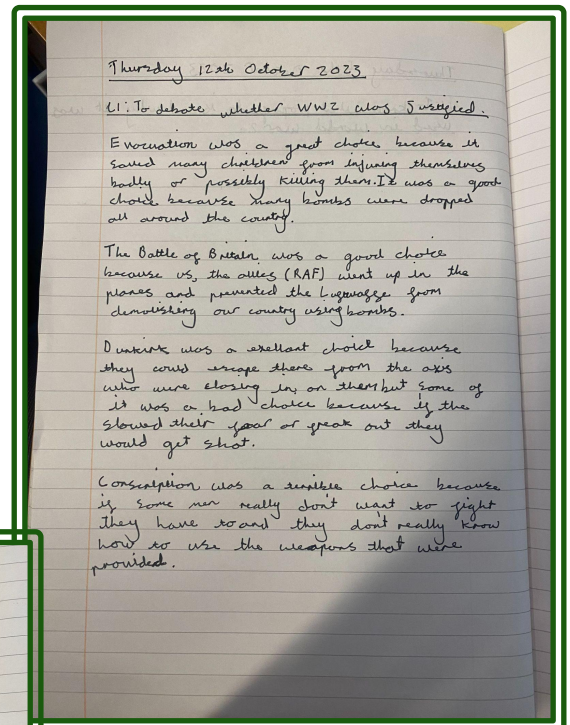 Thursday 12th October 2023
LI: To debate whether WW2 was Justified.
Evacuation was a great choice because it
saved many chreildren from injuring themselves
badly or possibly killing them. It was a good
choice because many bombs were dropped
all around the country.
The Battle of Britain was a good choice
because us, the allies (RAF) went up in the
planes and prevented the Lugwaffe from
demolishing our country using bombs.
Dunkirk was a exellant choice because
they could escape there from the axis
who were closing in on them but some of
it was a bad choice because if the
slowed their fear or freak out they
would get shot.
Conscription was a terrible choice because
if some men really don't want to fight
they have to and they don't really know
how to use the weapons that were
provided.